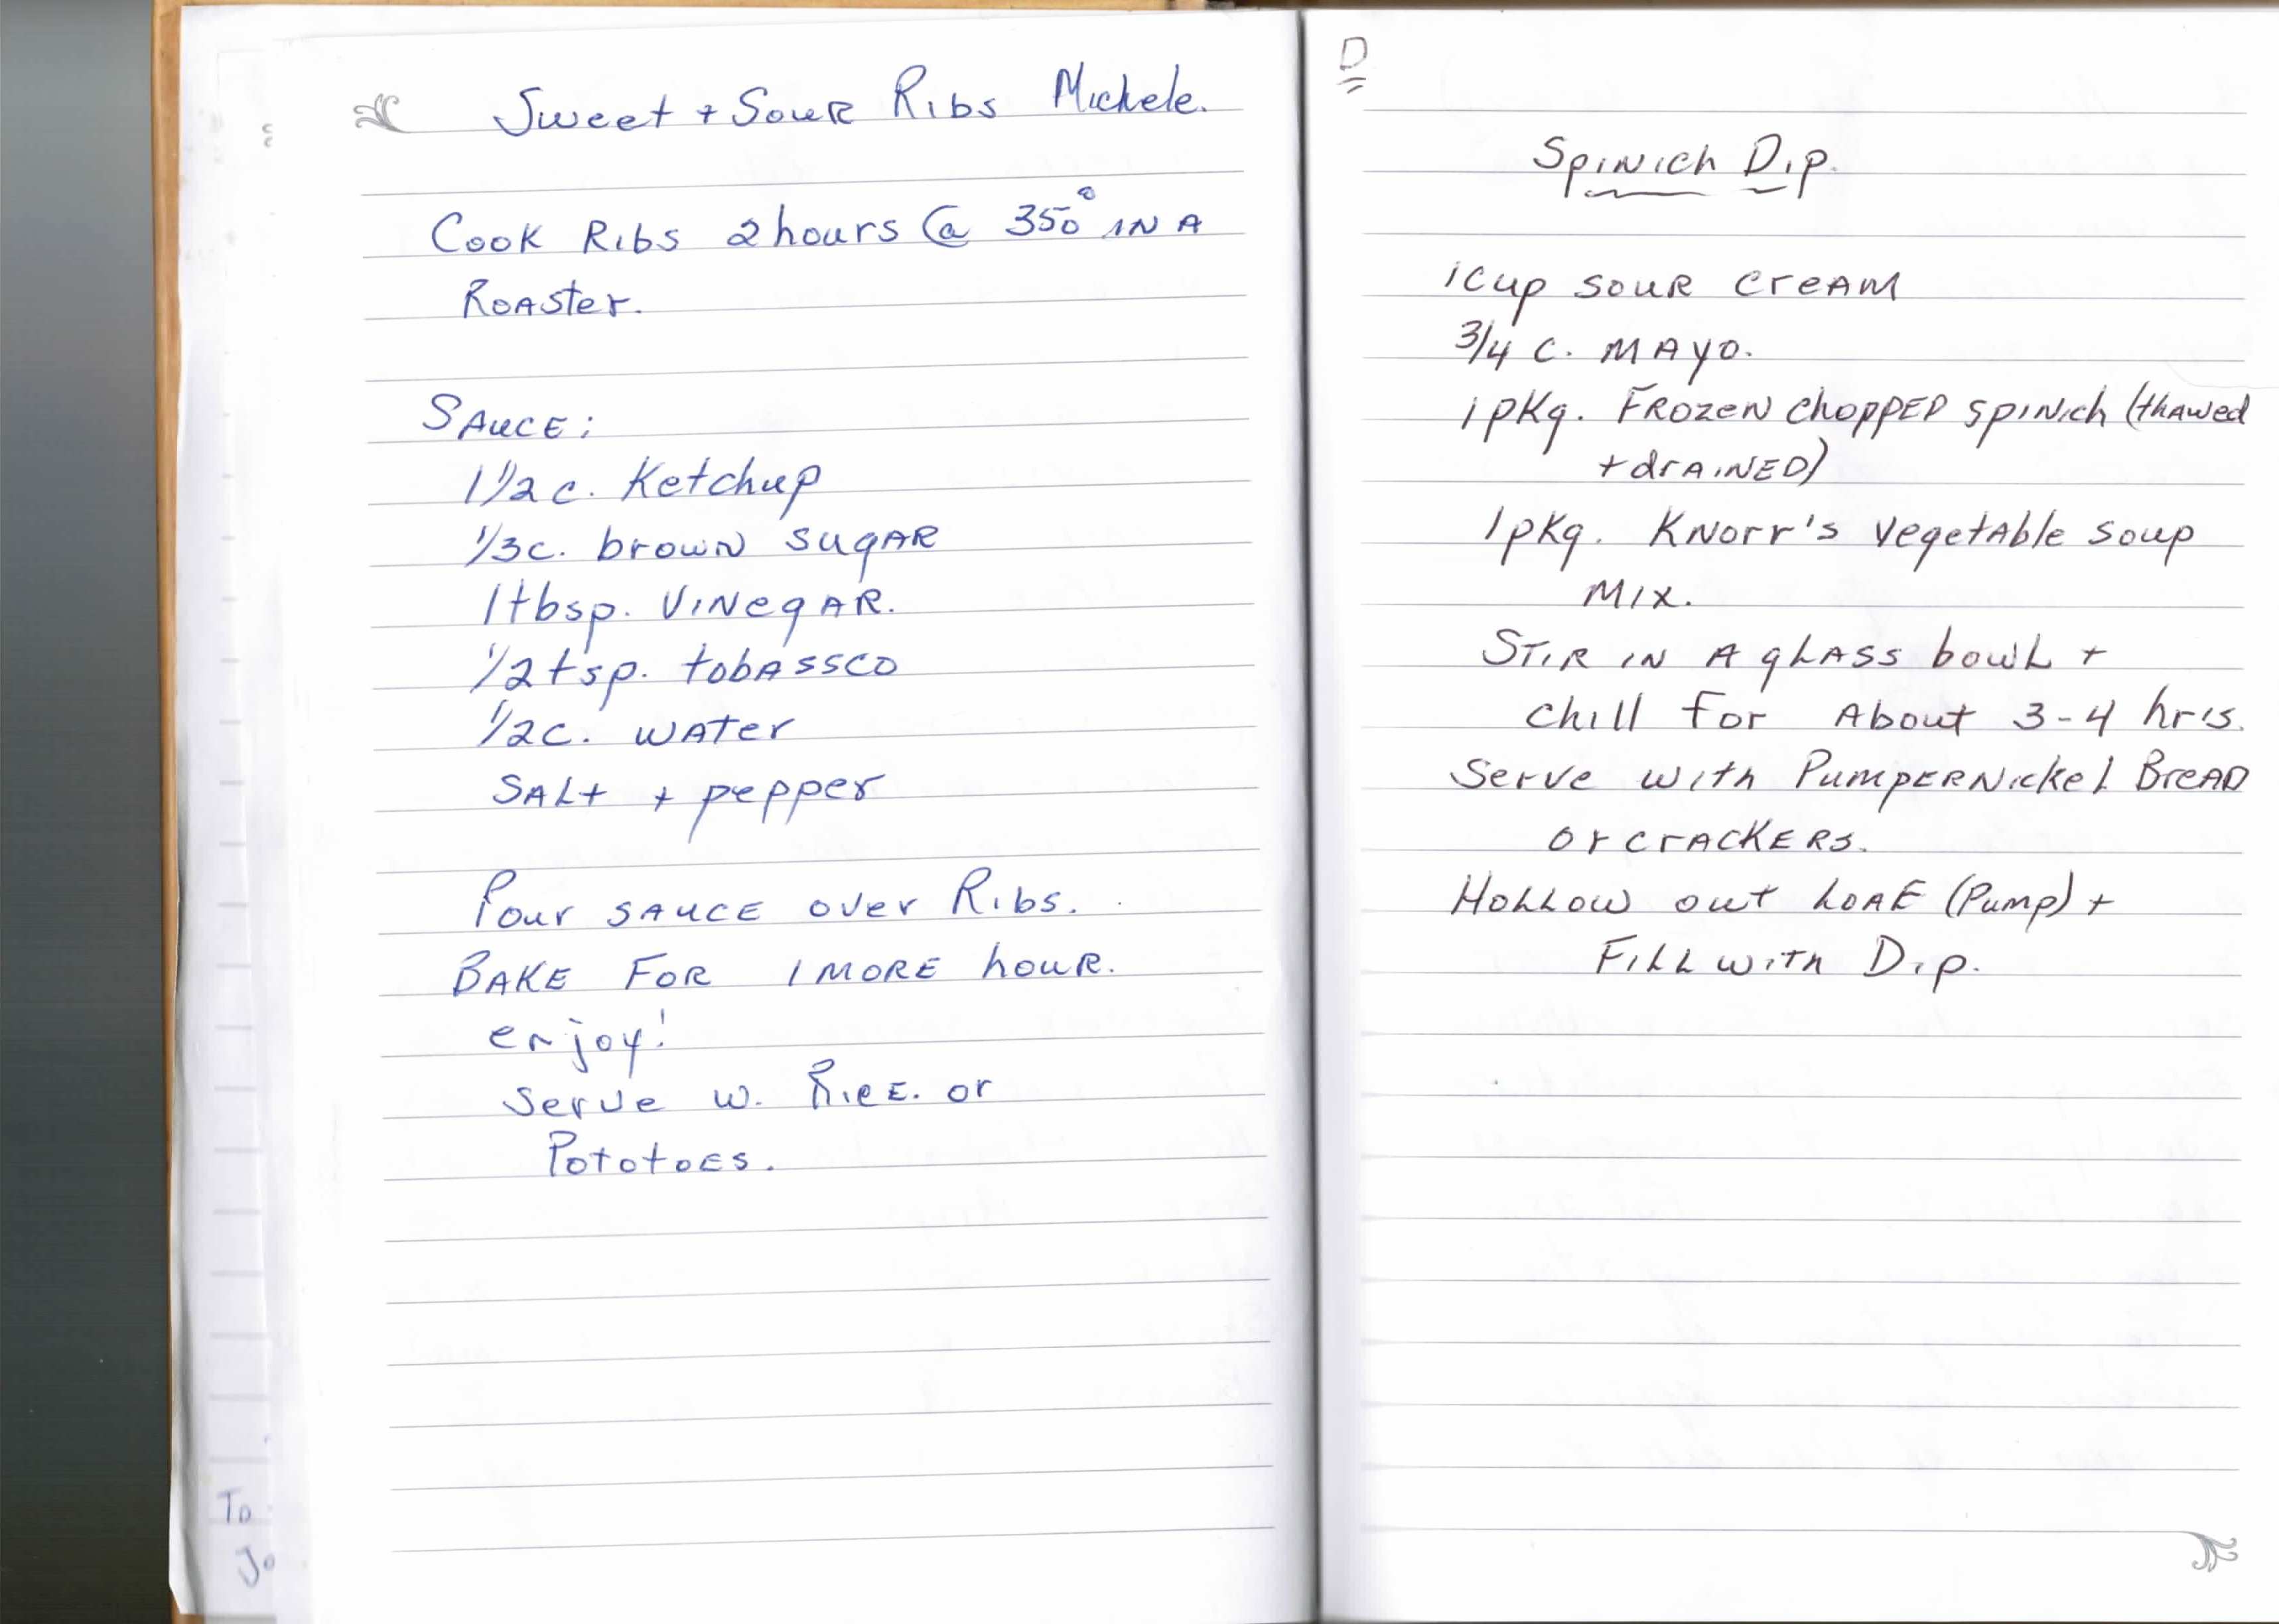 Sweet + Sour Ribs Michele.
Cook Ribs 2 hours @ 350° in a
Roaster.
Sauce:
1 1/2 c. Ketchup
1/3 c. brown sugar
1 tbsp. Vinegar.
1/2 tsp. tobassco
1/2 c. water
Salt + pepper
Pour sauce over Ribs.
Bake for 1 more hour.
enjoy!
Serve w. Rice. or
Pototoes.
To
Jo
D
Spinich Dip.
1 cup sour cream
3/4 c. mayo.
1 pkg. Frozen chopped spinich (thawed
+ drained)
1 pkg. Knorr's vegetable soup
mix.
Stir in a glass bowl +
chill for about 3-4 hrs.
Serve with Pumpernickel Bread
or crackers.
Hollow out loaf (Pump) +
Fill with Dip.